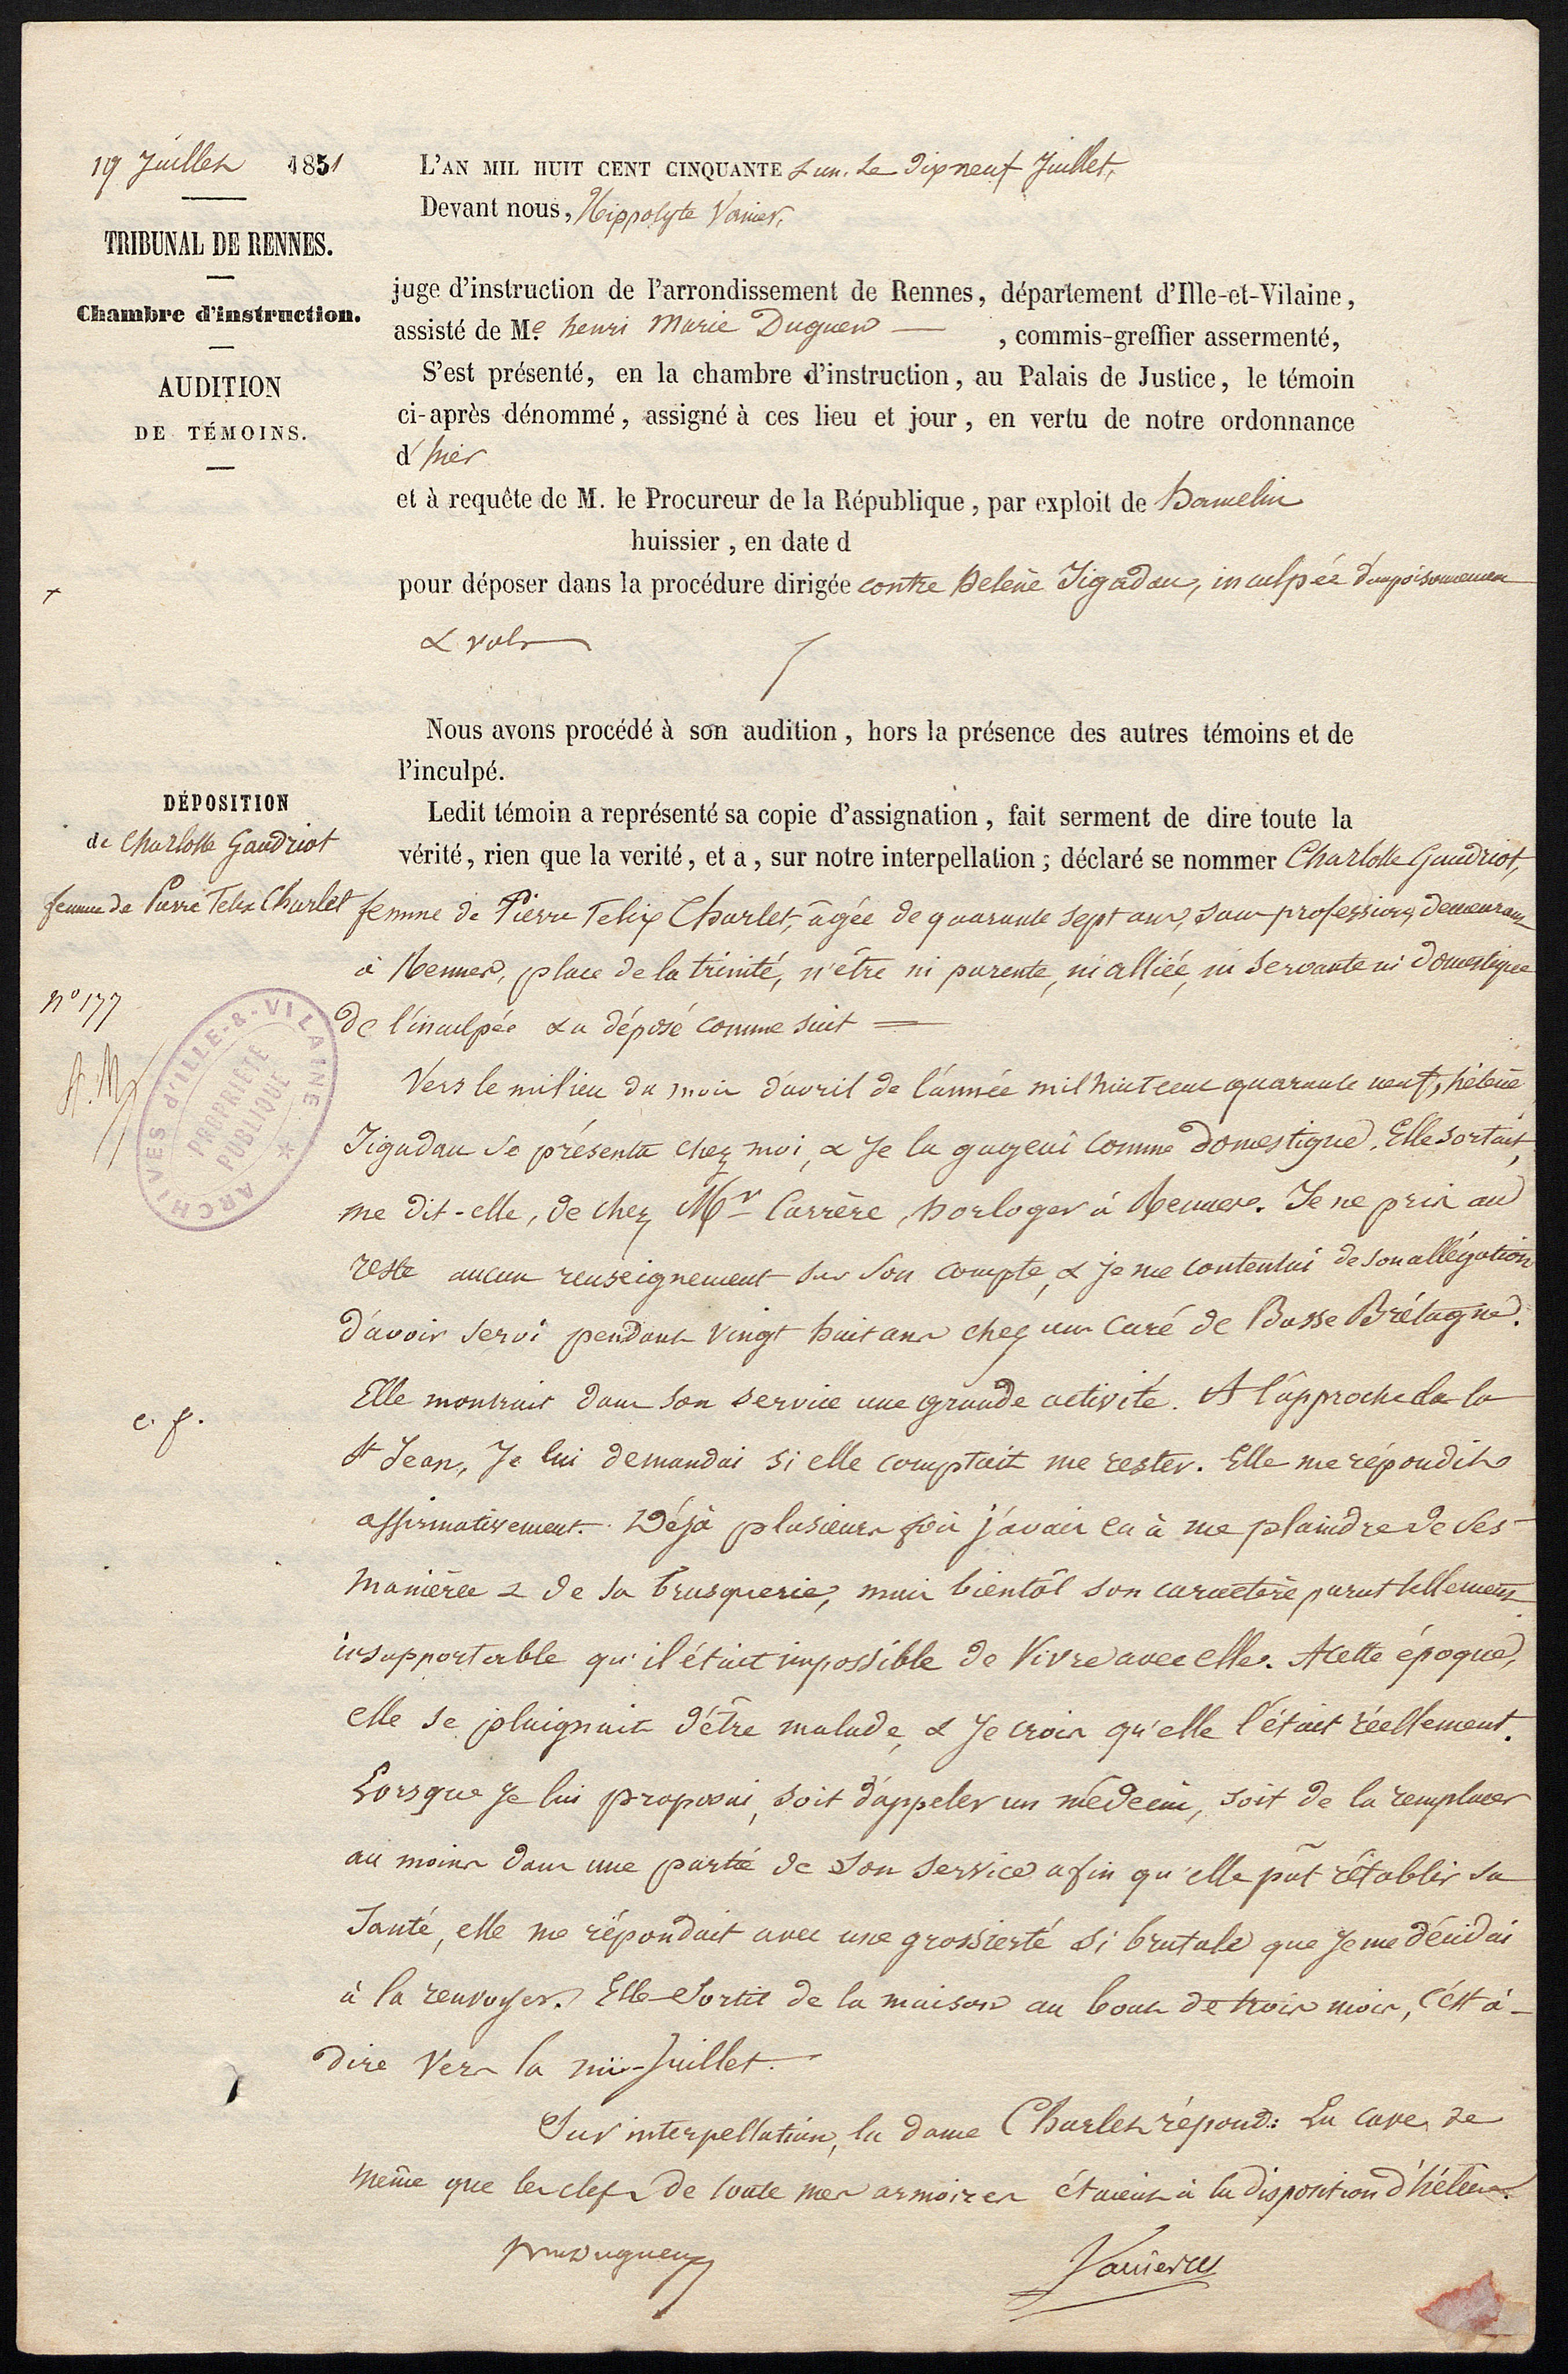 19 Juillet 1851
TRIBUNAL DE RENNES.
Chambre d'instruction.
AUDITION
DE TÉMOINS.
L'AN MIL HUIT CENT CINQUANTE & un. Le dix neuf Juillet,
Devant nous, Hippolyte Vanier,
juge d'instruction de l'arrondissement de Rennes, département d'Ille-et-Vilaine,
assisté de Me. henri Marie Duguen — , commis-greffier assermenté,
S'est présenté, en la chambre d'instruction, au Palais de Justice, le témoin
ci-après dénommé, assigné à ces lieu et jour, en vertu de notre ordonnance
d'hier
et à requête de M. le Procureur de la République, par exploit de hamelin
huissier, en date d
pour déposer dans la procédure dirigée contre helène Jigadau, inculpée d'empoisonnement
& vols
Nous avons procédé à son audition, hors la présence des autres témoins et de
l'inculpé.
DÉPOSITION
de Charlotte Gaudriot
femme de Pierre Felix Charlet
n° 177
ARCHIVES d'ILLE-&-VILAINE *
PROPRIÉTÉ
PUBLIQUE
c. f.
Ledit témoin a représenté sa copie d'assignation, fait serment de dire toute la
vérité, rien que la verité, et a, sur notre interpellation; déclaré se nommer Charlotte Gaudriot,
femme de Pierre Felix Charlet, âgée de quarante sept ans, sans profession, demeurant
à Rennes, place de la trinité, n'être ni parente, ni alliée, ni servante ni domestique
de l'inculpée & a déposé comme suit =
Vers le milieu du mois d'avril de l'année mil huit cent quarante neuf, hélène
Jigadau se présenta chez moi, & Je la gageai comme domestique. Elle sortait,
me dit-elle, de chez Mr Carrère, horloger à Rennes. Je ne pris au
reste aucun renseignement sur son compte, & je me contentai de son allégation
d'avoir servi pendant vingt huit ans chez un curé de Basse Brétagne.
Elle montrait dans son service une grande activité. A l'approche de la
St Jean, Je lui demandai si elle comptait me rester. Elle me répondit
affirmativement. Déjà plusieurs fois j'avais eu à me plaindre de ses
manières & de sa brusquerie, mais bientôt son caractère parut tellement
insupportable qu'il était impossible de Vivre avec elle. A cette époque,
elle se plaignait d'être malade, & Je crois qu'elle l'était réellement.
Lorsque Je lui proposai, soit d'appeler un médecin, soit de la remplacer
au moins dans une partie de son service afin qu'elle pût rétablir sa
Santé, elle me répondait avec une grossierté si brutale que Je me décidai
à la renvoyer. Elle sortit de la maison au bout de trois mois, c'est à-
dire Vers la mi-Juillet.
Sur interpellation, la dame Charlet répond: La cave, de
même que les clefs de toute mes armoires étaient à la disposition d'hélène.
Duguen
Vanier